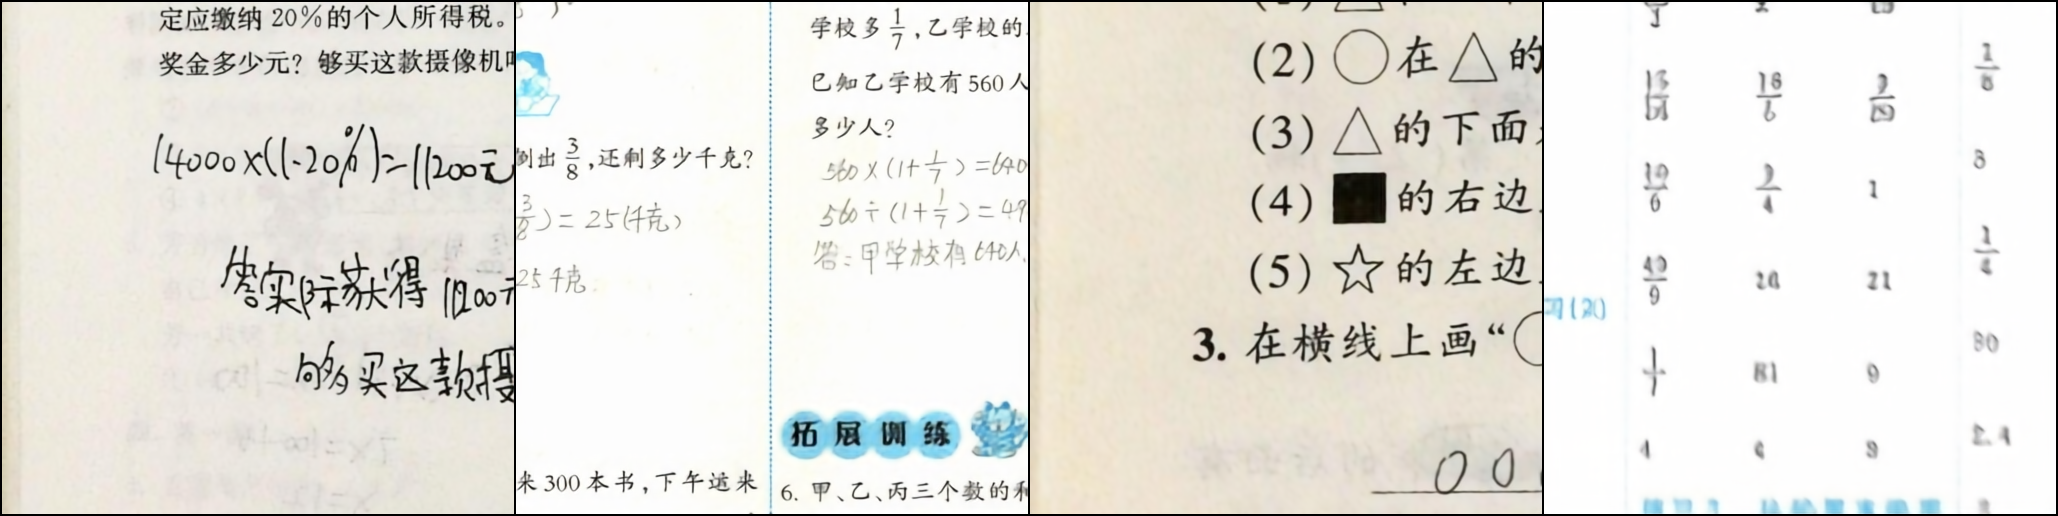 定应缴纳 20%的个人所得税。
奖金多少元？够买这款摄像机
14000×(1-20%)=11200元
答实际获得11200
够买这款摄
倒出 3/8 ,还剩多少千克?
3/8)=25(千克)
25千克
来300本书,下午运来
学校多 1/7 ,乙学校的
已知乙学校有560人
多少人?
560×(1+1/7)=640
560÷(1+1/7)=49
答:甲学校有640人.
拓展训练
6. 甲、乙、丙三个数的和
(2) ○在△的
(3) △的下面
(4) ■的右边
(5) ☆的左边
3. 在横线上画“○
00
3/4 1
49/9 20 21
1/7 81 9
4 9
1/8
8
1/4
80
2.4